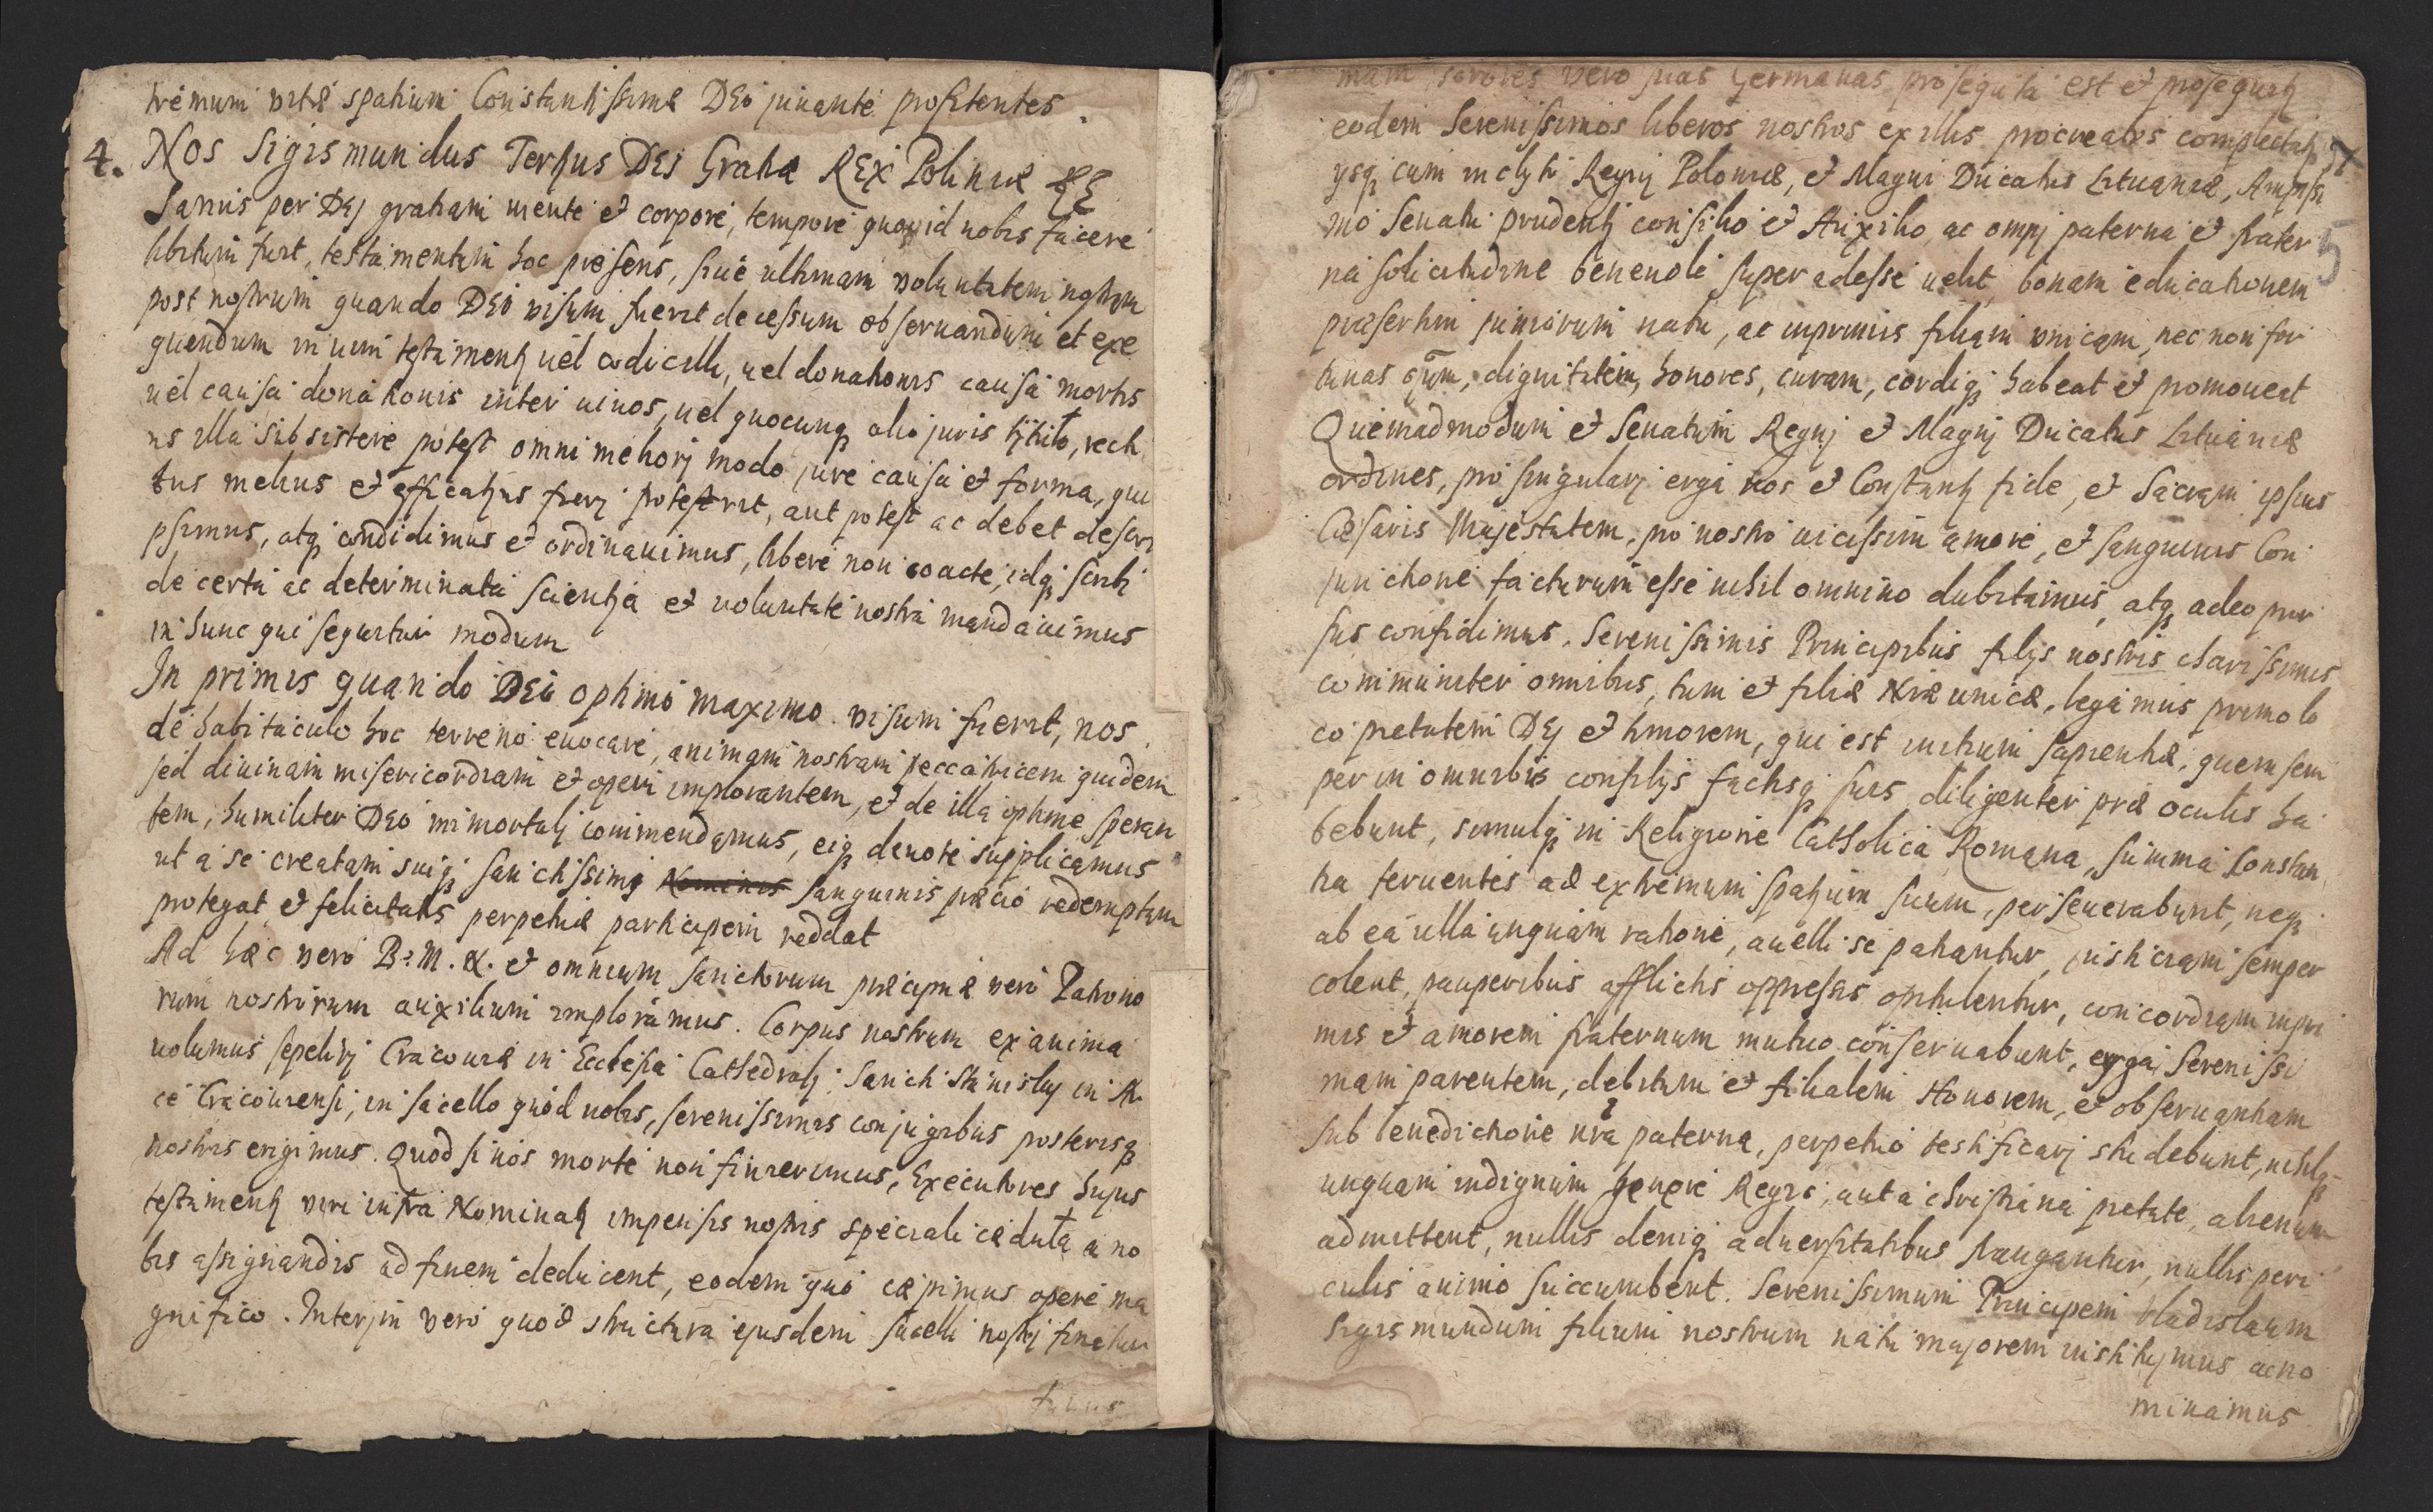 tremum vitæ spatium Constantissime DEO juvante profitentes.
4. Nos Sigismundus Tertius DEI Gratia REX Poloniæ &c
Sanus per DEj gratiam mente et corpore, tempore quo id nobis facere
libitum fuit, testamentum hoc præsens, sive ultimam voluntatem nostram
post nostrum quando DEO visum fuerit decessum observandum et exe
quendum in uim testamentj uel codicilli, uel donationis causa mortis
uel causa donationis inter uiuos, uel quocunq alio juris titulo, recti
us illa subsistere potest omni meliorj modo jure causa et forma, qui
bus melius et efficatius fierj poterit, aut potest ac debet descri
psimus, atq condidimus et ordinauimus, libere non coacte, idq scribj
de certa ac determinata scientia et uoluntate nostra mandauimus
in hunc qui sequitur modum
In primis quando DEO optimo maximo visum fuerit, nos
de habitaculo hoc terreno euocare, animam nostram peccatricem quidem
sed diuinam misericordiam et opem implorantem, et de illa optime speran
tem, humiliter DEO immortalj commendamus, eiq deuote supplicamus
ut a se creatam suiq sanctissimj Nominis sanguinis precio redemptam
protegat et felicitatis perpetuæ participem reddat
Ad hæc vero B. M. V. et omnium sanctorum præcipue vero Patrono
rum nostrorum auxilium imploramus. Corpus nostrum exanime
uolumus sepelirj Cracouiæ in Ecclesia Cathedralj Sancti Stanislaj in Ar
ce Cracouiensi, in sacello quod nobis, serenissimis conjugibus posterisq
nostris erigimus. Quod si nos morte non finierimus, Executores hujus
testamentj viri infra Nominatj impensis nostris speciali cedula a no
bis assignandis ad finem deducent, eodem quo cæpimus opere ma
gnifico. Interjm vero quod structura ejusdem sacelli nostrj finietur
mam sorores vero suas Germanas prosequuta est et prosequitur
eodem Serenissimos liberos nostros ex illis procreatos complectatur
ysq cum inclyti Regnj Poloniæ, et Magni Ducatus Lituaniæ, Amplissi
mo Senatu prudentj consilio et Auxilio ac omnj paterna et frater
na solicitudine beneuole superadesse uelit, bonam educationem
præsertim juniorum natu, ac inprimis filiam vnicam, nec non for
tunas eorum, dignitatem, honores, curam, cordiq habeat et promoueat
Quemadmodum et Senatum Regnj et Magnj Ducatus Lituaniæ
ordines, pro singularj erga nos et Constantj fide, et Sacram ipsius
Cæsaris Majestatem, pro nostro uicissim amore, et sanguinis Con
junctione facturum esse nihil omnino dubitamus, atq adeo pror
sus confidimus. Serenissimis Principibus filijs nostris charissimis
communiter omnibus, tum et filiæ Nræ unicæ, legamus primo lo
co pietatem DEj et timorem, qui est initium sapientiæ, quem sem
per in omnibus consilijs factisq suis diligenter præ oculis ha
bebunt, simulq in Religione Catholica Romana, summa constan
tia feruentes ad extremum spatium suum, perseuerabunt, neq
ab ea ulla unquam ratione, auelli se patiantur, justiciam semper
colent, pauperibus afflictis oppressis opitulentur, concordiam inpri
mis et amorem fraternum mutuo conseruabunt, erga, Serenissi
mam parentem, debitum et filialem Honorem, et obseruantiam
sub benedictione nra paterna, perpetuo testificarj studebunt, nihilq
unquam indignum genere Regio, aut a christiana pietate, alienum
admittent, nullis deniq aduersitatibus frangantur, nullis peri
culis animo succumbent. Serenissimum Principem Vladislaum
Sigismundum filium nostrum natu majorem instituimus ac no
minamus
5